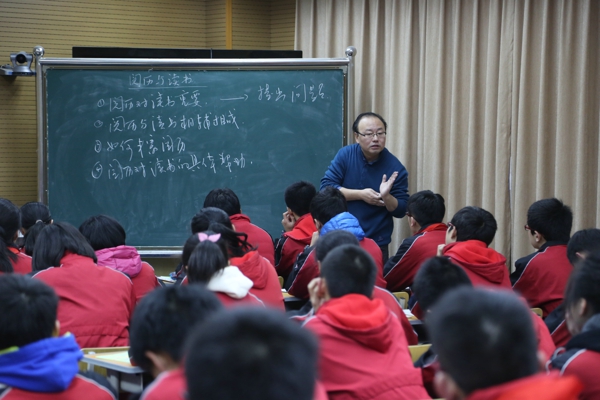 阅历与读书
①阅历对读书需要 → 提出问题
②阅历与读书相辅相成
③如何丰富阅历
④阅历对读书的具体帮助.